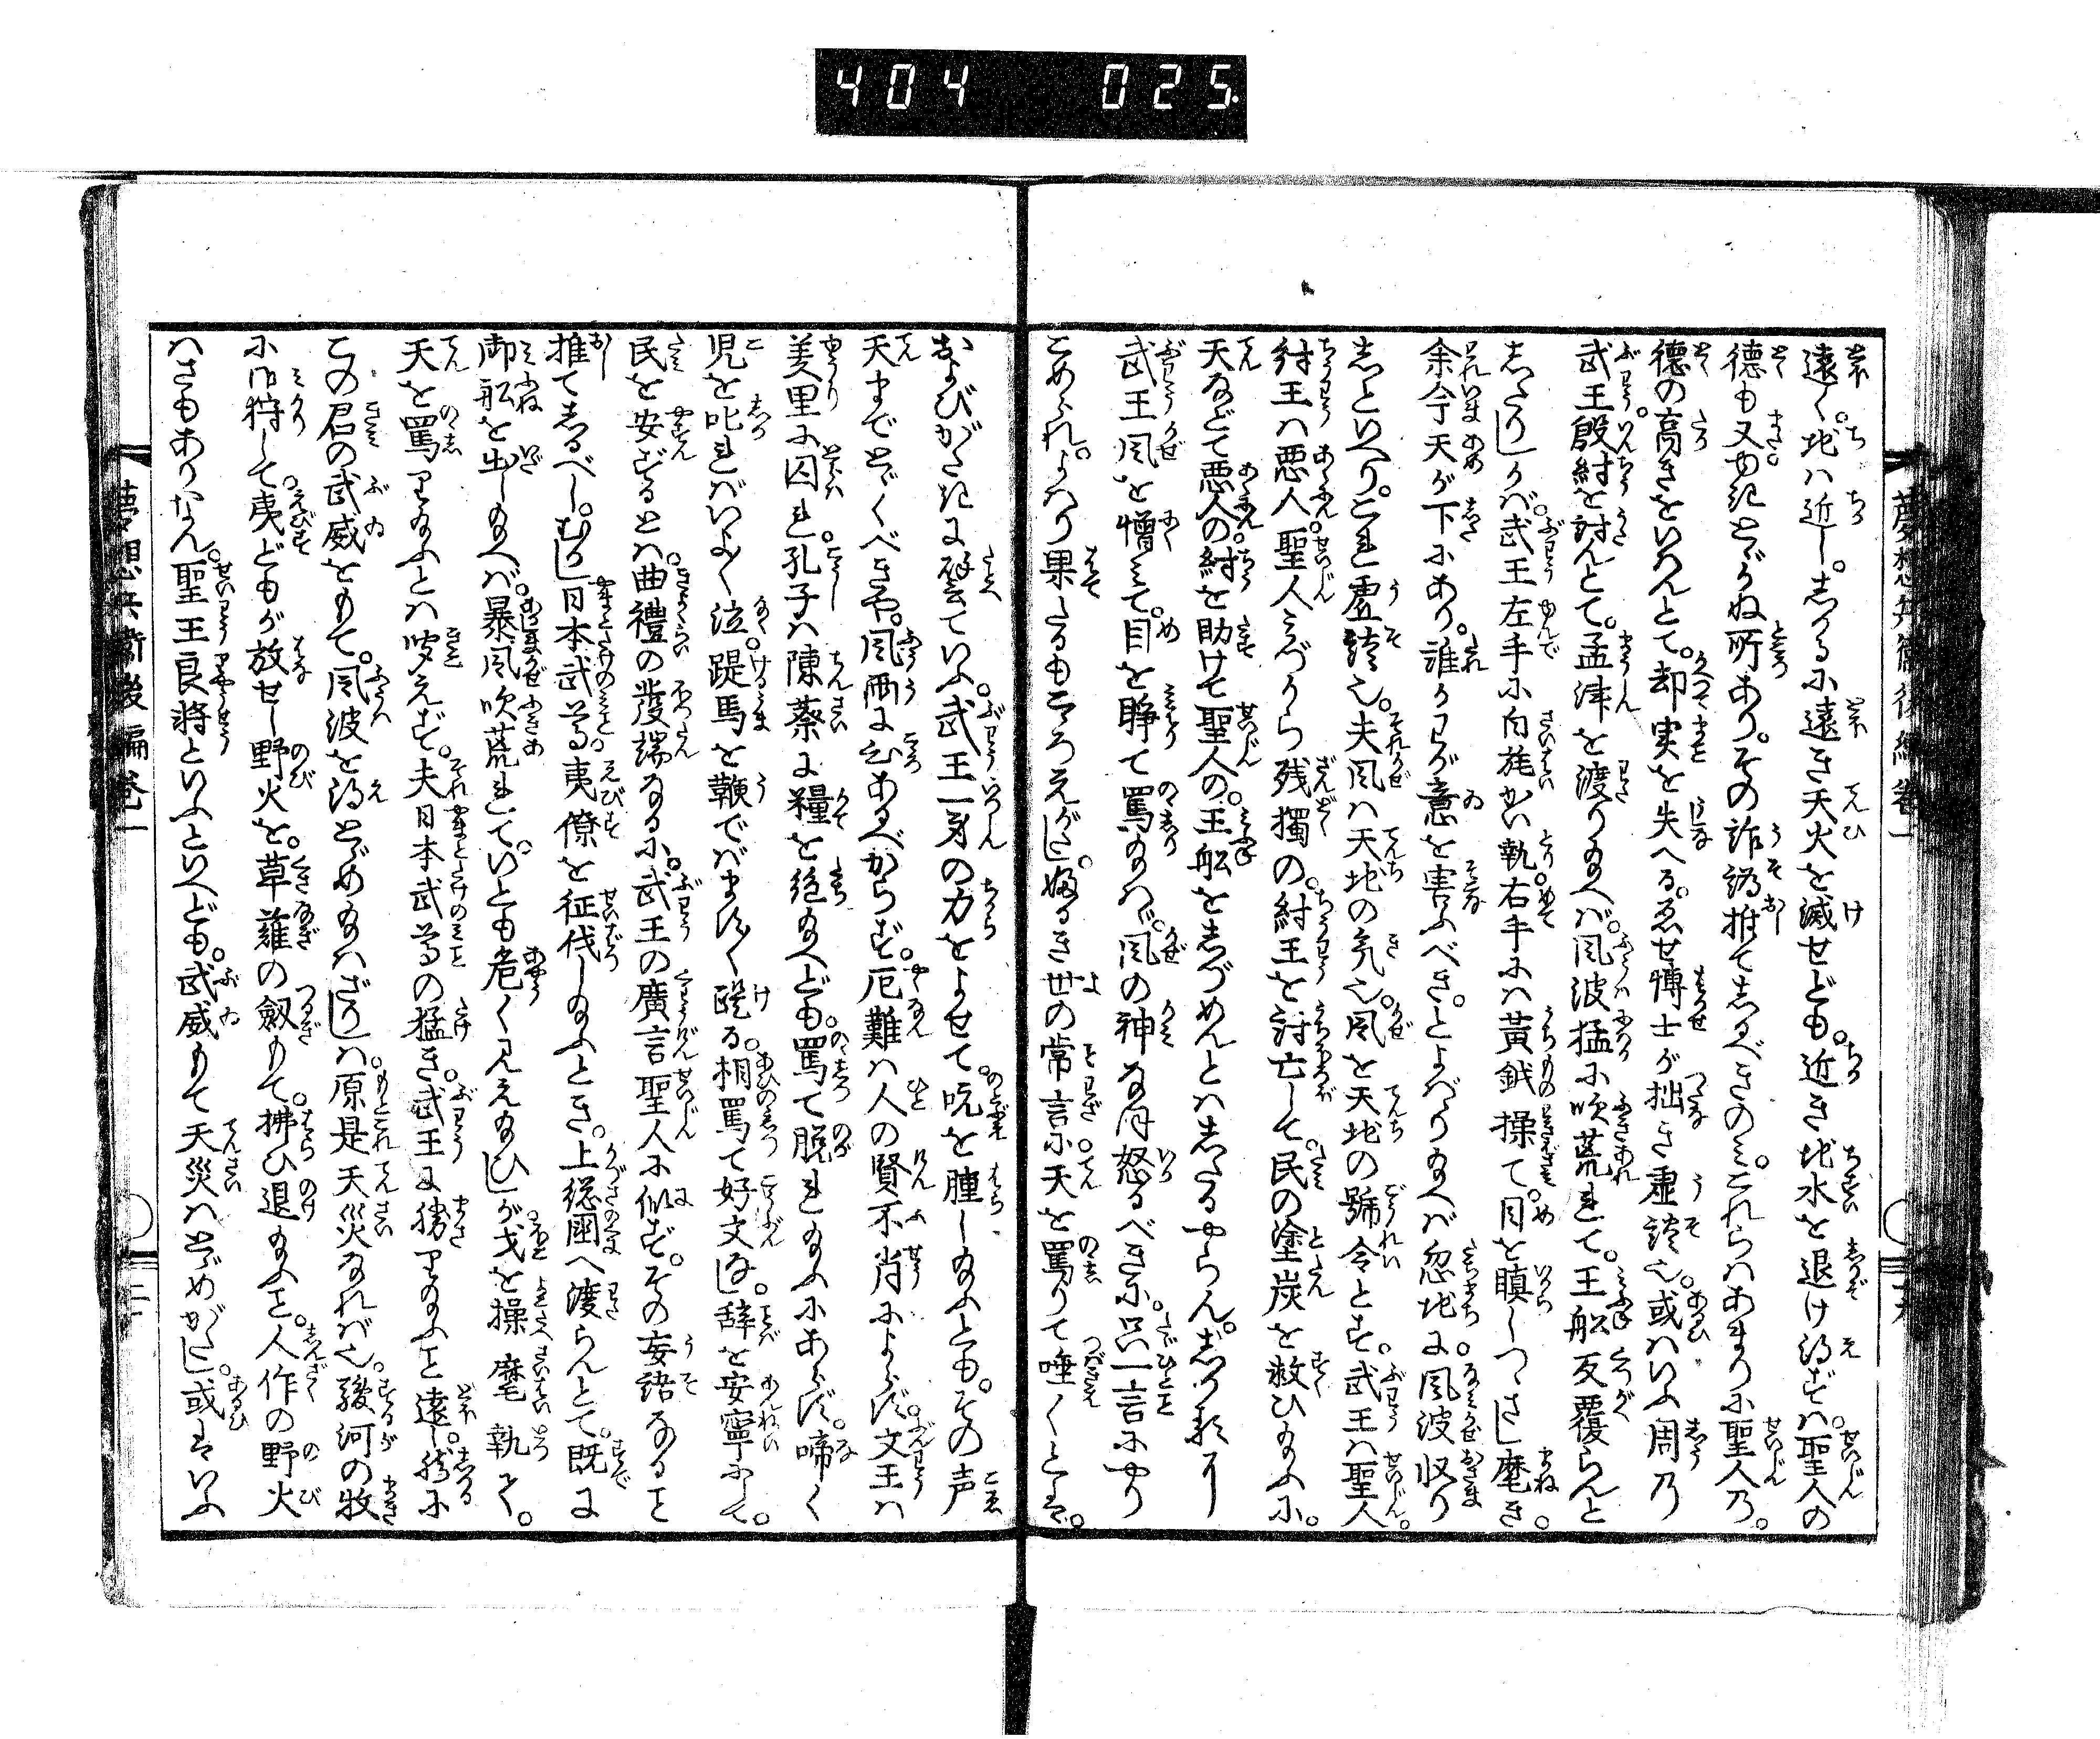 404 025
夢想兵衞後編卷一
遠く。地ハ近し。しかるに遠き天火を滅せども。近き地水を退け得ずハ。聖人の
徳も又やむにとゞかぬ所あり。その詐偽推てしるべきのミ。これらハあまりに聖人乃。
徳の高きをいはんとて。却実を失へる。ゑせ博士が拙き虚談也。或ハいふ周乃
武王殷紂を討んとて。孟津を渡り給へバ。風波猛に吹荒れて。王舩反覆らんと
したりしかバ。武王左手に白旄かい執。右手にハ黄鉞操て。目を瞋しつゝさし麾き。
余今天が下にあり。誰かわが意を害ふべき。とよバゝり給へバ忽地に。風波収り
しといへり。これ虚談也。夫風ハ天地の気也。風を天地の號令とす。武王ハ聖人
紂王ハ悪人。聖人ミづから残獨の。紂王を討亡して。民の塗炭を救ひ給ふに。
天などて悪人の紂を助けて聖人の。王舩をしづめんとハしたるやらん。
武王風を憎ミて。目を睜て罵給ハヾ。風の神なほ怒るべきに。只一言にやり
こめられ。よハり果たるもこゝろえがたし。晦き世の常言に天を罵りて唾くとハ。
およびがたきに譬ていふ。武王一身の力をよせて。吭を腫し給ふとも。その声
天までとゞくべきや。風雨に心あるべからず。厄難ハ人の賢不肖によらず。文王ハ
羑里に囚れ。孔子ハ陳蔡に糧を絶給へども。罵て脱れ給ふにあらず。啼く
児を叱れバいよ／＼泣。踶馬を鞭でバます／＼踶る。相罵て好文なし。辞を安寧にして。
民を安ずるとハ。曲禮の發端なるに。武王の廣言聖人に似ず。その妄語なること
推てしるべし。むかし日本武尊夷僚を征伐し給ふとき。上総国へ渡らんとて。既に
御舩を出し給へバ。暴風吹荒れて。いとも危く見え給ひしが戈を操麾執て。
天を罵り給ふとハ聞えず。夫日本武尊の猛き。武王に勝り給ふこと遠し。然るに
この君の武威をもて。風波を得とゞめ給ハざりしハ。原是天災なれバ也。駿河の牧
に御狩して。夷どもが放せし野火を。草薙の劔もて。拂ひ退給ふこと。人作の野火
ハさもありなん。聖王良将といふといへども。武威もて天災ハとゞめがたし。或はいふ
夢想兵衞後編卷一